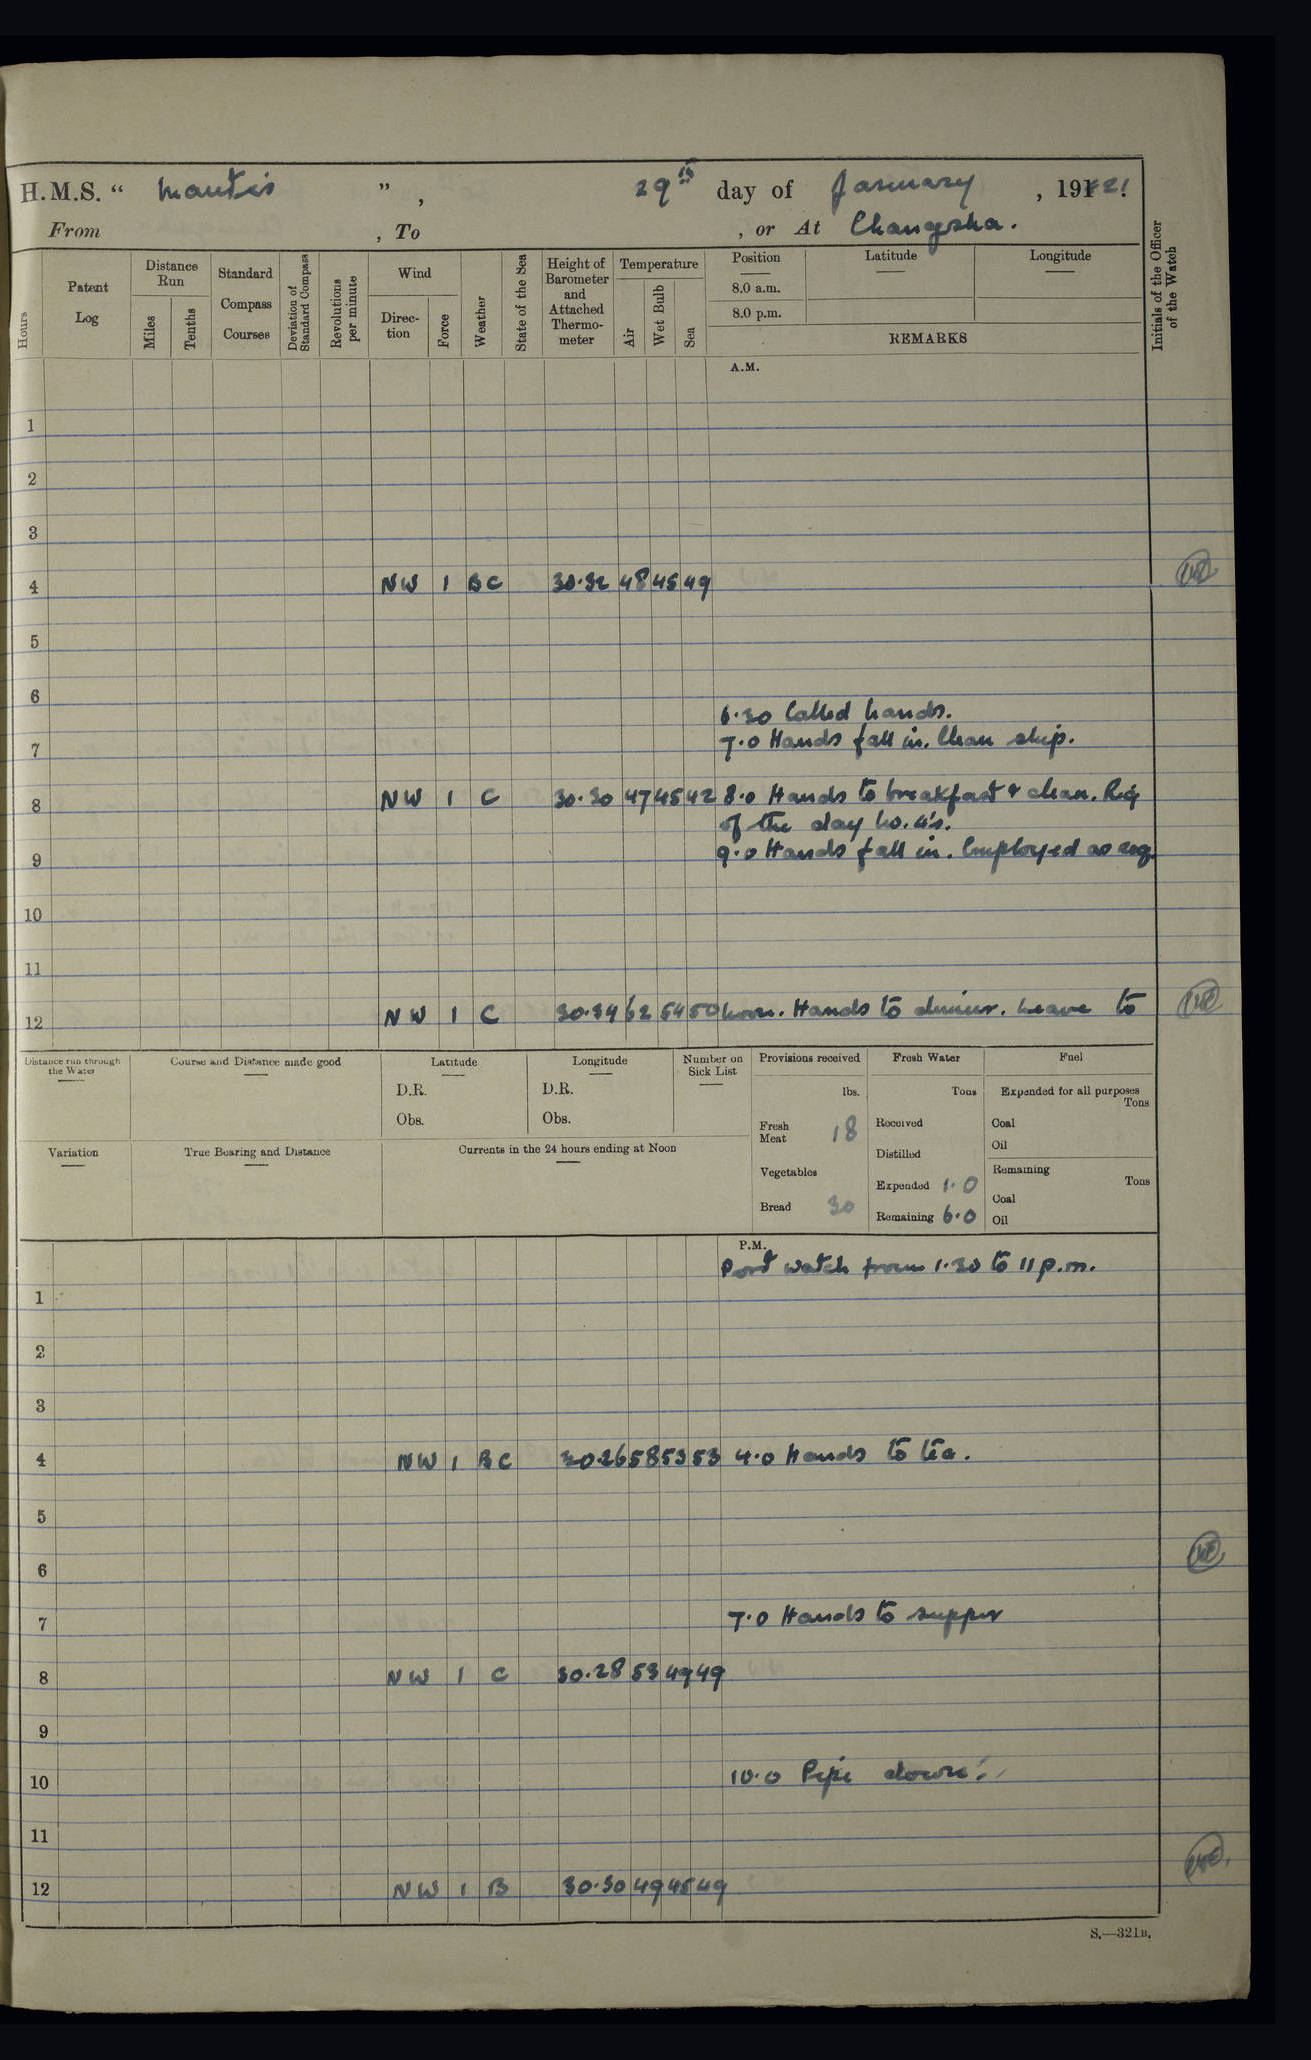 H.M.S. “ Mantis ”, 29th day of January, 1921.
From , To , or At Changsha.
Hours
Patent Log
Distance Run
Miles
Tenths
Standard Compass Courses
Deviation of Standard Compass
Revolutions per minute
Wind
Direc-tion
Force
Weather
State of the Sea
Height of Barometer and Attached Thermo-meter
Temperature
Air
Wet Bulb
Sea
Position
8.0 a.m.
8.0 p.m.
Latitude
Longitude
REMARKS
Initials of the Officer of the Watch
A.M.
1
2
3
4 NW 1 BC 30.32 48 45 49
5
6
6.30 Called hands.
7 7.0 Hands fall in. Clean ship.
8 NW 1 C 30.30 47 45 42 8.0 Hands to breakfast & clean. Rig
of the day No. 4's.
9 9.0 Hands fall in. Employed as req.
10
11
12 NW 1 C 30.34 62 54 50 Noon. Hands to dinner. Leave to
Distance run through the Water
Course and Distance made good
Latitude
D.R.
Obs.
Longitude
D.R.
Obs.
Number on Sick List
Provisions received
lbs.
Fresh Meat 18
Vegetables
Bread 30
Fresh Water
Tons
Received
Distilled
Expended 1.0
Remaining 6.0
Fuel
Expended for all purposes
Tons
Coal
Oil
Remaining
Tons
Coal
Oil
Variation
True Bearing and Distance
Currents in the 24 hours ending at Noon
P.M.
Port watch from 1.30 to 11 p.m.
1
2
3
4 NW 1 BC 30.26 58 53 53 4.0 Hands to tea.
5
6
7 7.0 Hands to supper
8 NW 1 C 30.28 53 49 49
9
10 10.0 Pipe down.
11
12 NW 1 B 30.30 49 45 49
S.—321B.